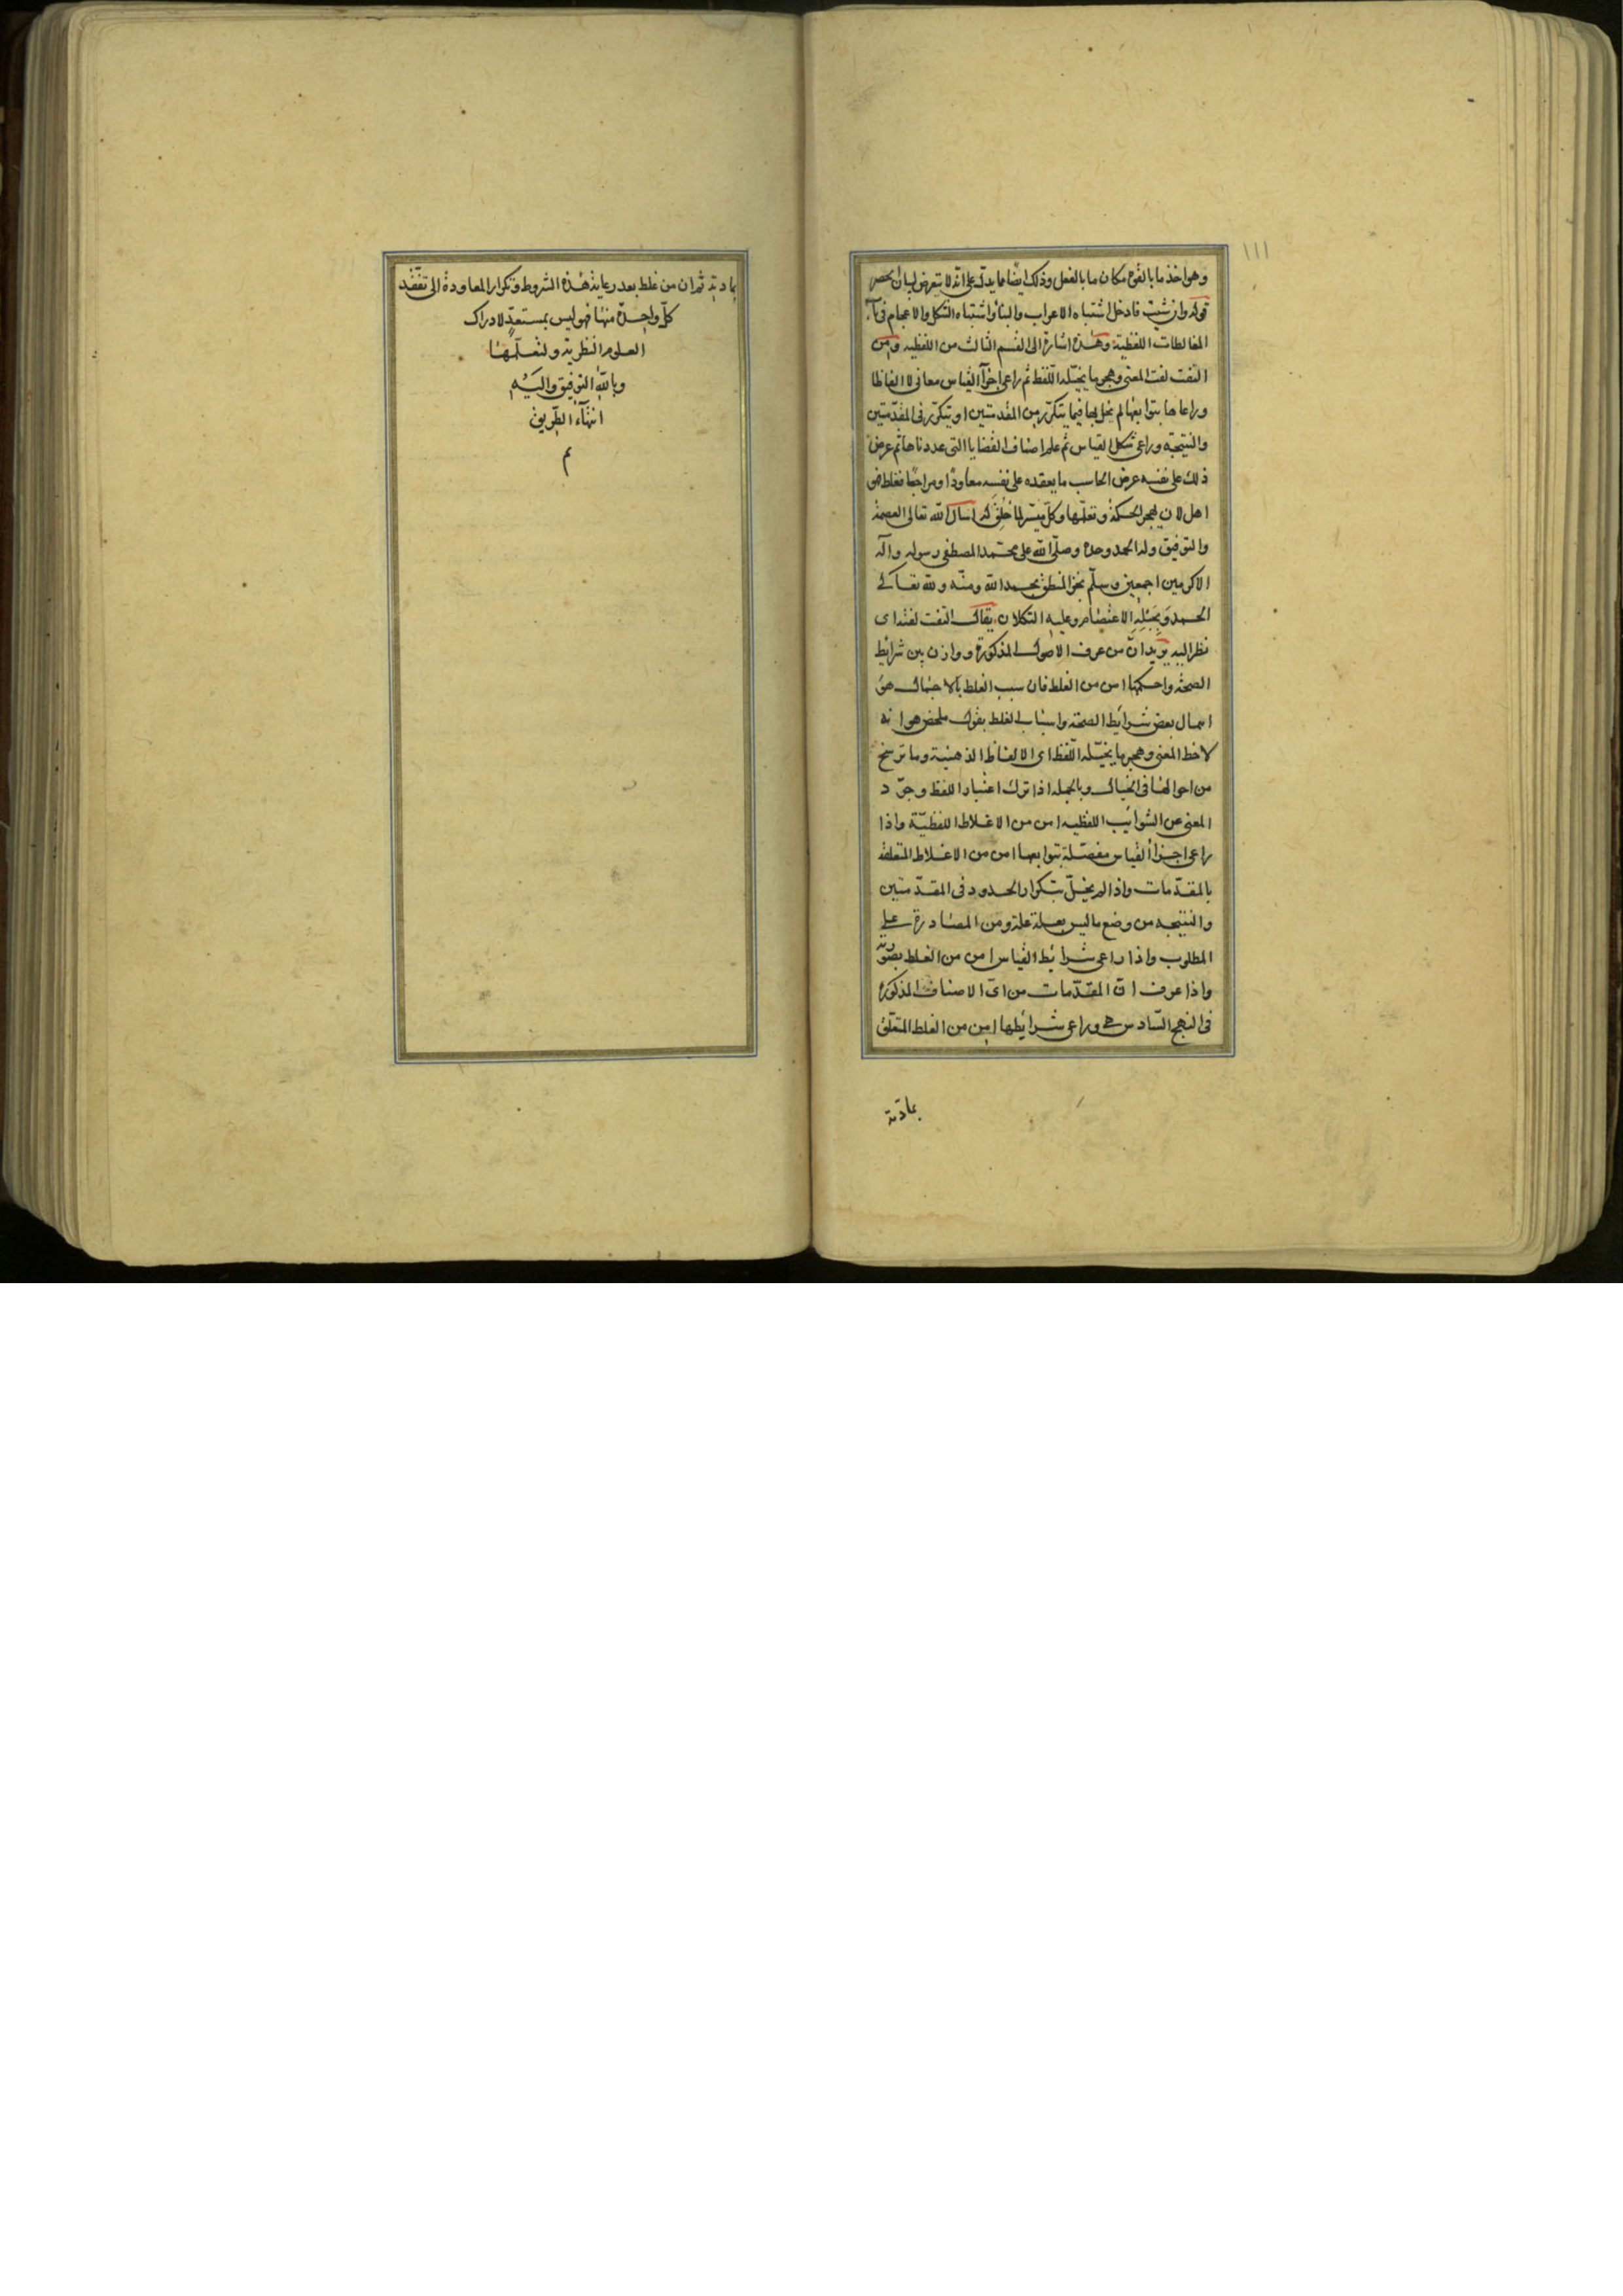 ١١١
وهو اخذ ما بالقوة مكان ما بالفعل وذلك ايضا مما يدل على انه لا يتعرض لبيان الحصر
قوله وان شئت فادخل اشتباه الاعراب والبناء واشتباه الشكل والاعجام فى
المغالطات اللفظية وهذه اشارة الى القسم الثالث من اللفظيه ومن
التفت لفت المعنى وهجر ما يخيّله اللفظ ثم راعى اجزآ القياس معانى لا الفاظا
وراعاها بتوابعها لم يخل بها فيما يتكرّر من المقدمتين او يتكرّر فى المقدّمتين
والنتيجة وراعى شكل القياس ثم علم اصناف القضايا التى عددناها ثم عرض
ذلك على نفسه عرض الحاسب ما يعقده على نفسه معاودًا ومراجعًا فغلط فهو
اهل لان يهجر الحكمة وتعلّمها وكلّ ميسّر لما خُلِقَ له اسال الله تعالى العصمة
والتوفيق وله الحمد وحده وصلّى الله على محمّد المصطفى رسوله وآله
الاكرمين اجمعين وسلّم نجز المنطق بحمد الله ومنّه ولله تعالى
الحمد وبحبله الاعتصام وعليه التكلان يقال التفت لفته اى
نظر اليه يريد انّ من عرف الاصول المذكورة ووازن بين شرائط
الصحّة واحكمها امن من الغلط فان سبب الغلط بالاجمال هو
اهمال بعض شرائط الصحّة واسباب الغلط بقول ملخص هو انه
لاحظ المعنى وهجر ما يخيّله اللّفظ اى الالفاظ الذهنية وما ترسخ
من احوالها فى الخيال وبالجمله اذا ترك اعتبار اللفظ وجرّد
المعنى عن الشوائب اللفظيه امن من الاغلاط اللفظيّة واذا
راعى اجزأ القياس مفصّلة بتوابعها امن من الاغلاط المتعلقة
بالمقدّمات واذا لم يخلّ بتكرار الحدود فى المقدّمتين
والنتيجه من وضع ما ليس بعلة علة ومن المصادرة على
المطلوب واذا راعى شرائط القياس امن من الغلط بصورته
واذا عرف انّ المقدّمات من اىّ الاصناف المذكورة
فى النهج السّادس هى وراعى شرائطها امن من الغلط المتعلّق
بمادته
بمادته ثم ان من غلط بعد رعاية هذه الشروط وتكرار المعاودة الى تفقّد
كلّ واحدة منها فهو ليس بمستعدّ لادراك
العلوم النظرية ولتعلّمها
وبالله التوفيق واليه
انتهآء الطريق
م